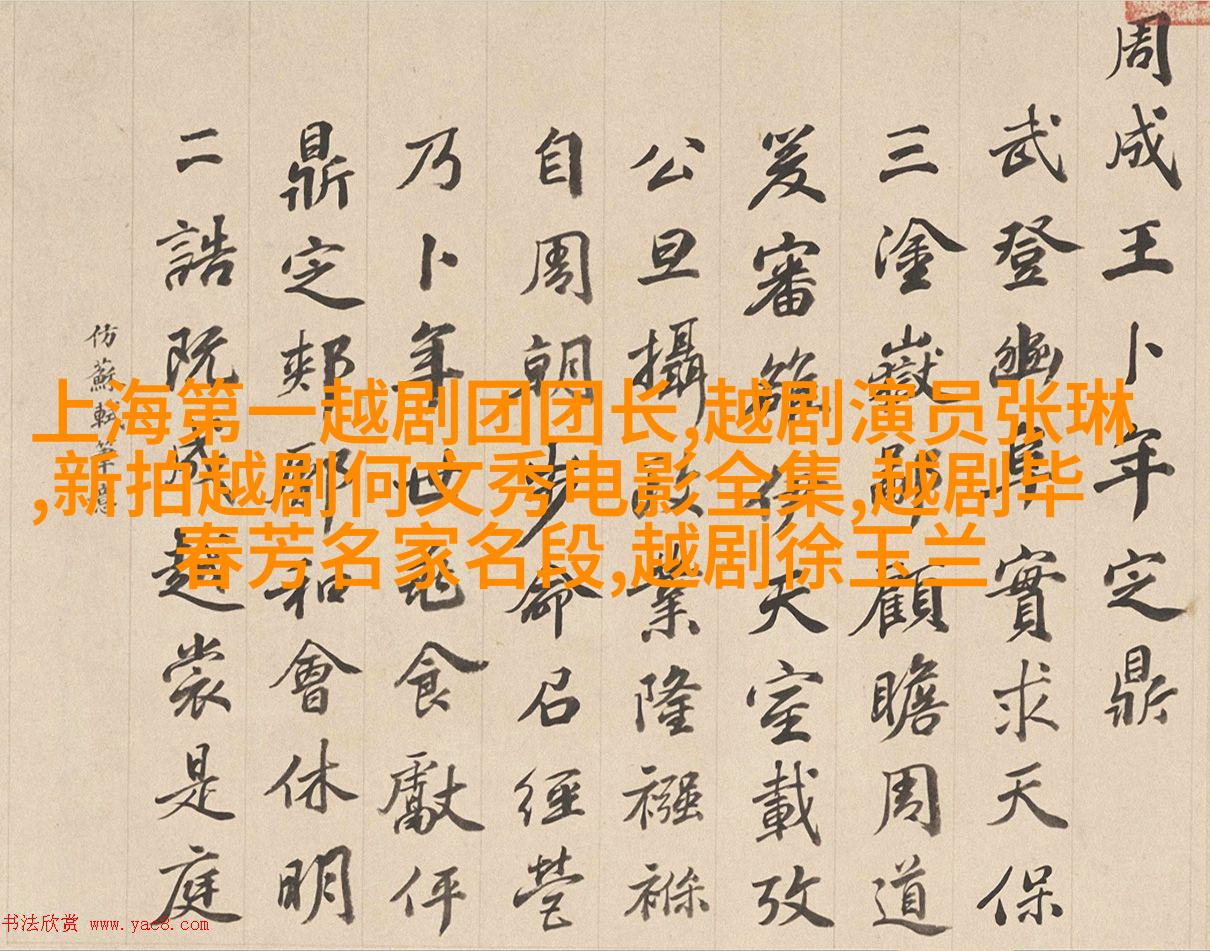 周成王卜年定鼎
武登豳阜實求天保
三塗嶽鄙顧瞻周道
爰審伊天室載攷
公旦攝政業隆襁褓
自周朝步命召經營
乃卜年世龜食獻伻
鼎定郟鄏和會休明
二誥既發越裳是庭
仿蘇軾筆意
上海第一越剧团团长,越剧演员张琳
,新拍越剧何文秀电影全集,越剧毕
春芳名家名段,越剧徐玉兰
书法欣赏 www.yac8.com